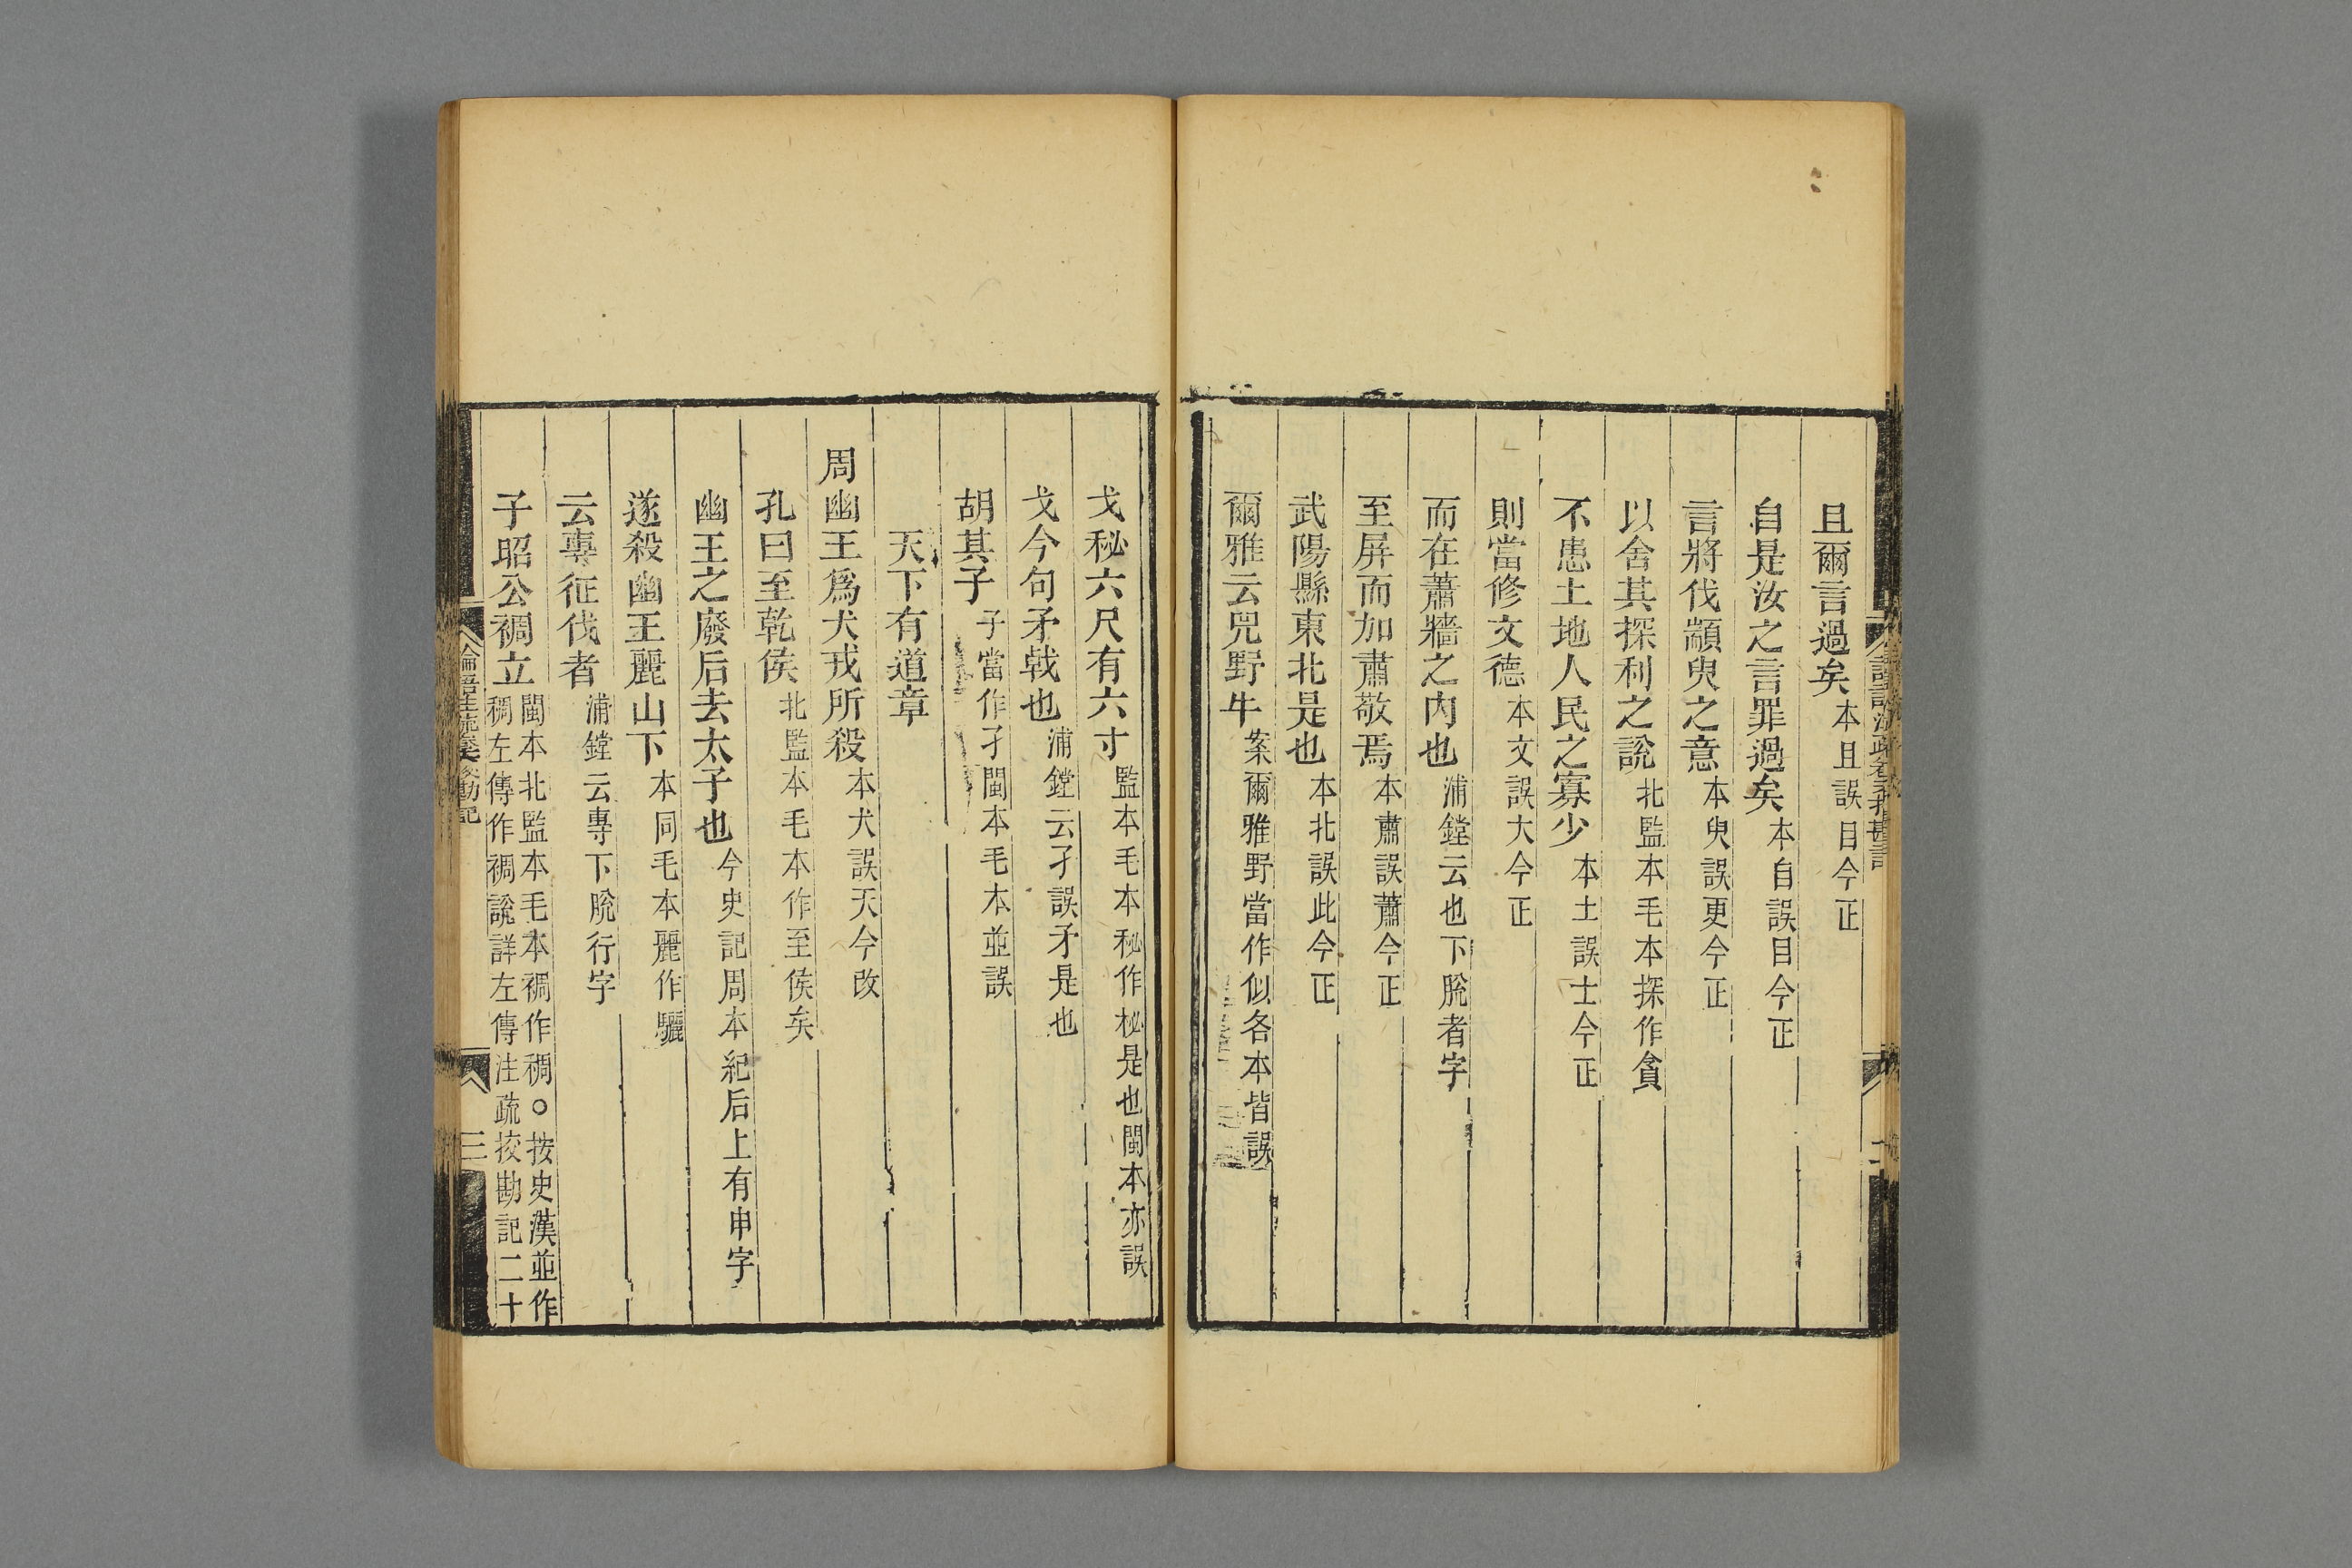 且爾言過矣本且誤目今正
自是汝之言罪過矣本自誤目今正
言將伐顓臾之意本臾誤更今正
以舍其探利之說北監本毛本探作貪
不患土地人民之寡少本土誤士今正
則當修文德本文誤大今正
而在蕭牆之內也浦鏜云也下脫者字
至屏而加肅敬焉本肅誤蕭今正
武陽縣東北是也本北誤此今正
爾雅云兕野牛案爾雅野當作似各本皆誤
戈秘六尺有六寸監本毛本秘作柲是也閩本亦誤
戈今句矛戟也浦鏜云孑誤矛是也
胡其子子當作孑閩本毛本並誤
天下有道章
周幽王爲犬戎所殺本犬誤天今改
孔曰至乾侯北監本毛本作至侯矣
幽王之廢后去太子也今史記周本紀后上有申字
遂殺幽王麗山下本同毛本麗作驪
云專征伐者浦鏜云專下脫行字
子昭公裯立閩本北監本毛本裯作稠○按史漢並作
稠左傳作裯說詳左傳注疏挍勘記二十
三